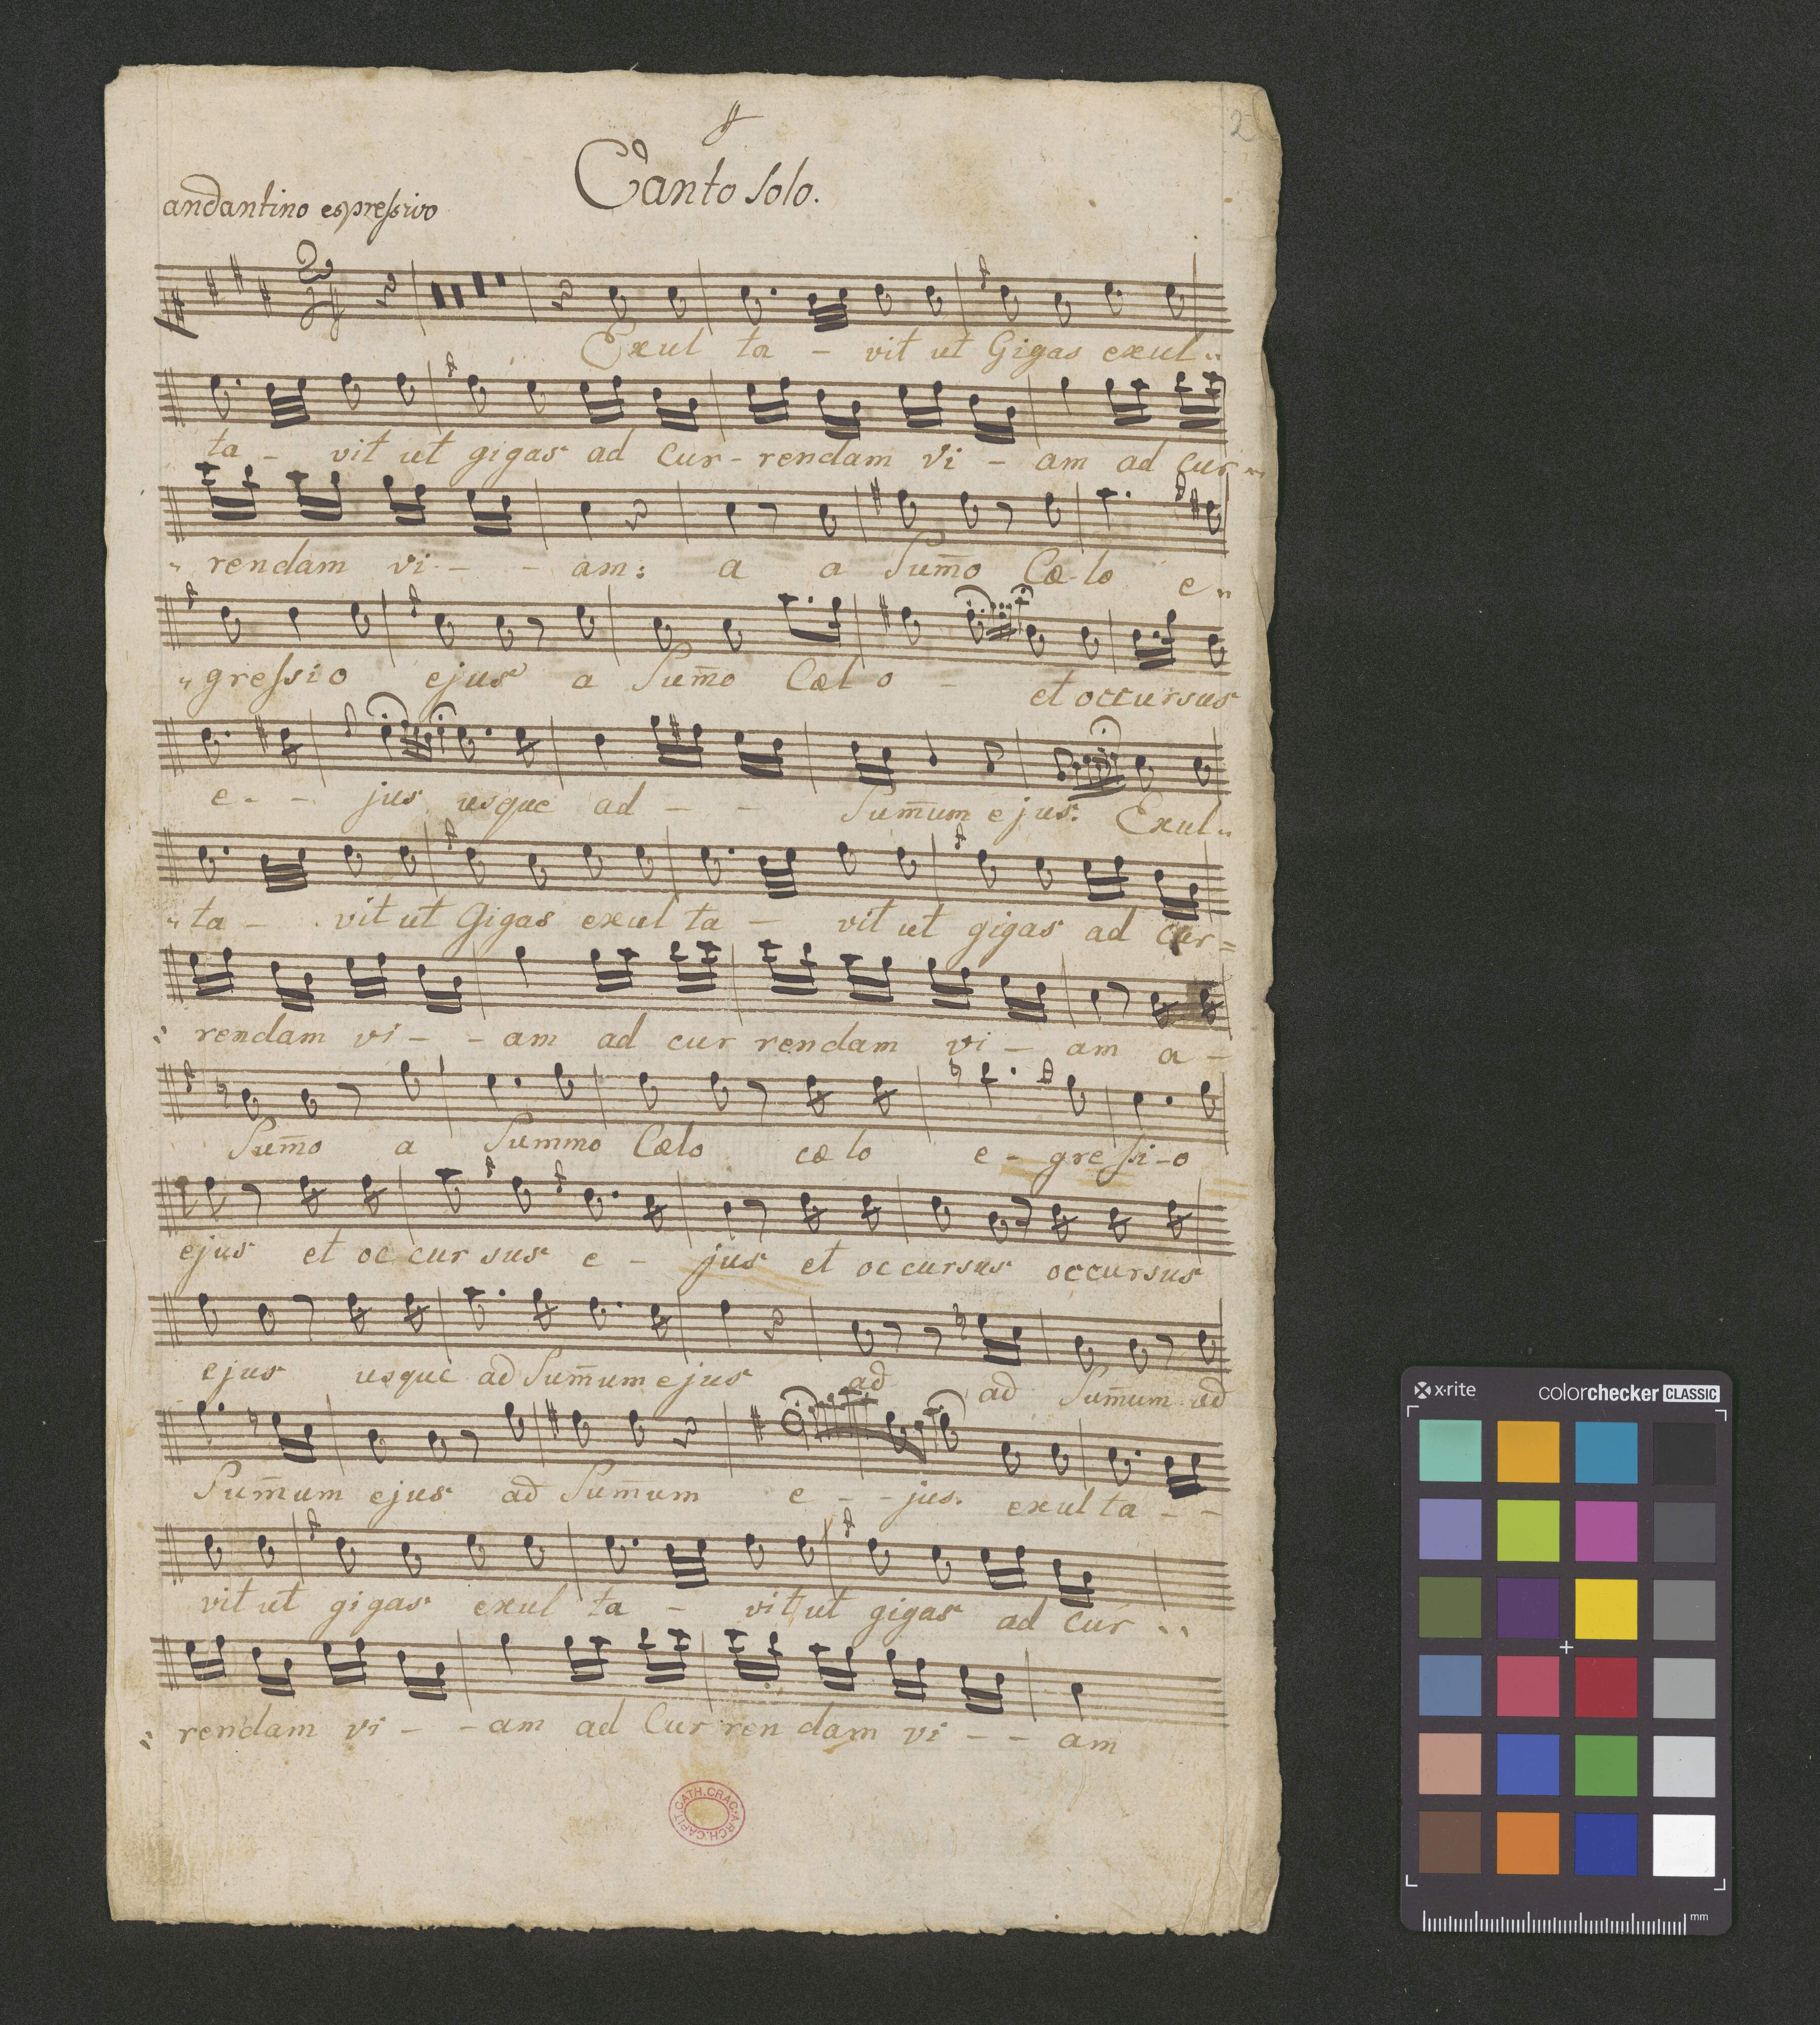 2
Canto Solo.
andantino espressivo
Exul ta - vit ut Gigas exul„
ta - vit ut gigas ad Cur - rendam vi - am ad cur„
„ rendam vi - - am: a a Sum̄o Cælo e„
„ gressio ejus a Sum̄o Cælo - et occursus
e - - jus usque ad - - Sum̄um ejus: Exul„
„ ta - vit ut Gigas exul ta - vit ut gigas ad cur=
„ rendam vi - - am ad cur rendam vi - am a -
Sum̄o a Summo Cælo cælo e - gressi - o
ejus et oc cur sus e - jus et occursus occursus
ejus usque ad Sum̄um ejus ad ad Sum̄um ad
Sum̄um ejus ad Sum̄um e - - jus. exul ta - -
vit ut gigas exul ta - vit ut gigas ad cur „
„ rendam vi - - am ad Cur ren dam vi - - am
ARCH.CAPIT.CATH.CRAC.
x·rite colorchecker CLASSIC
mm